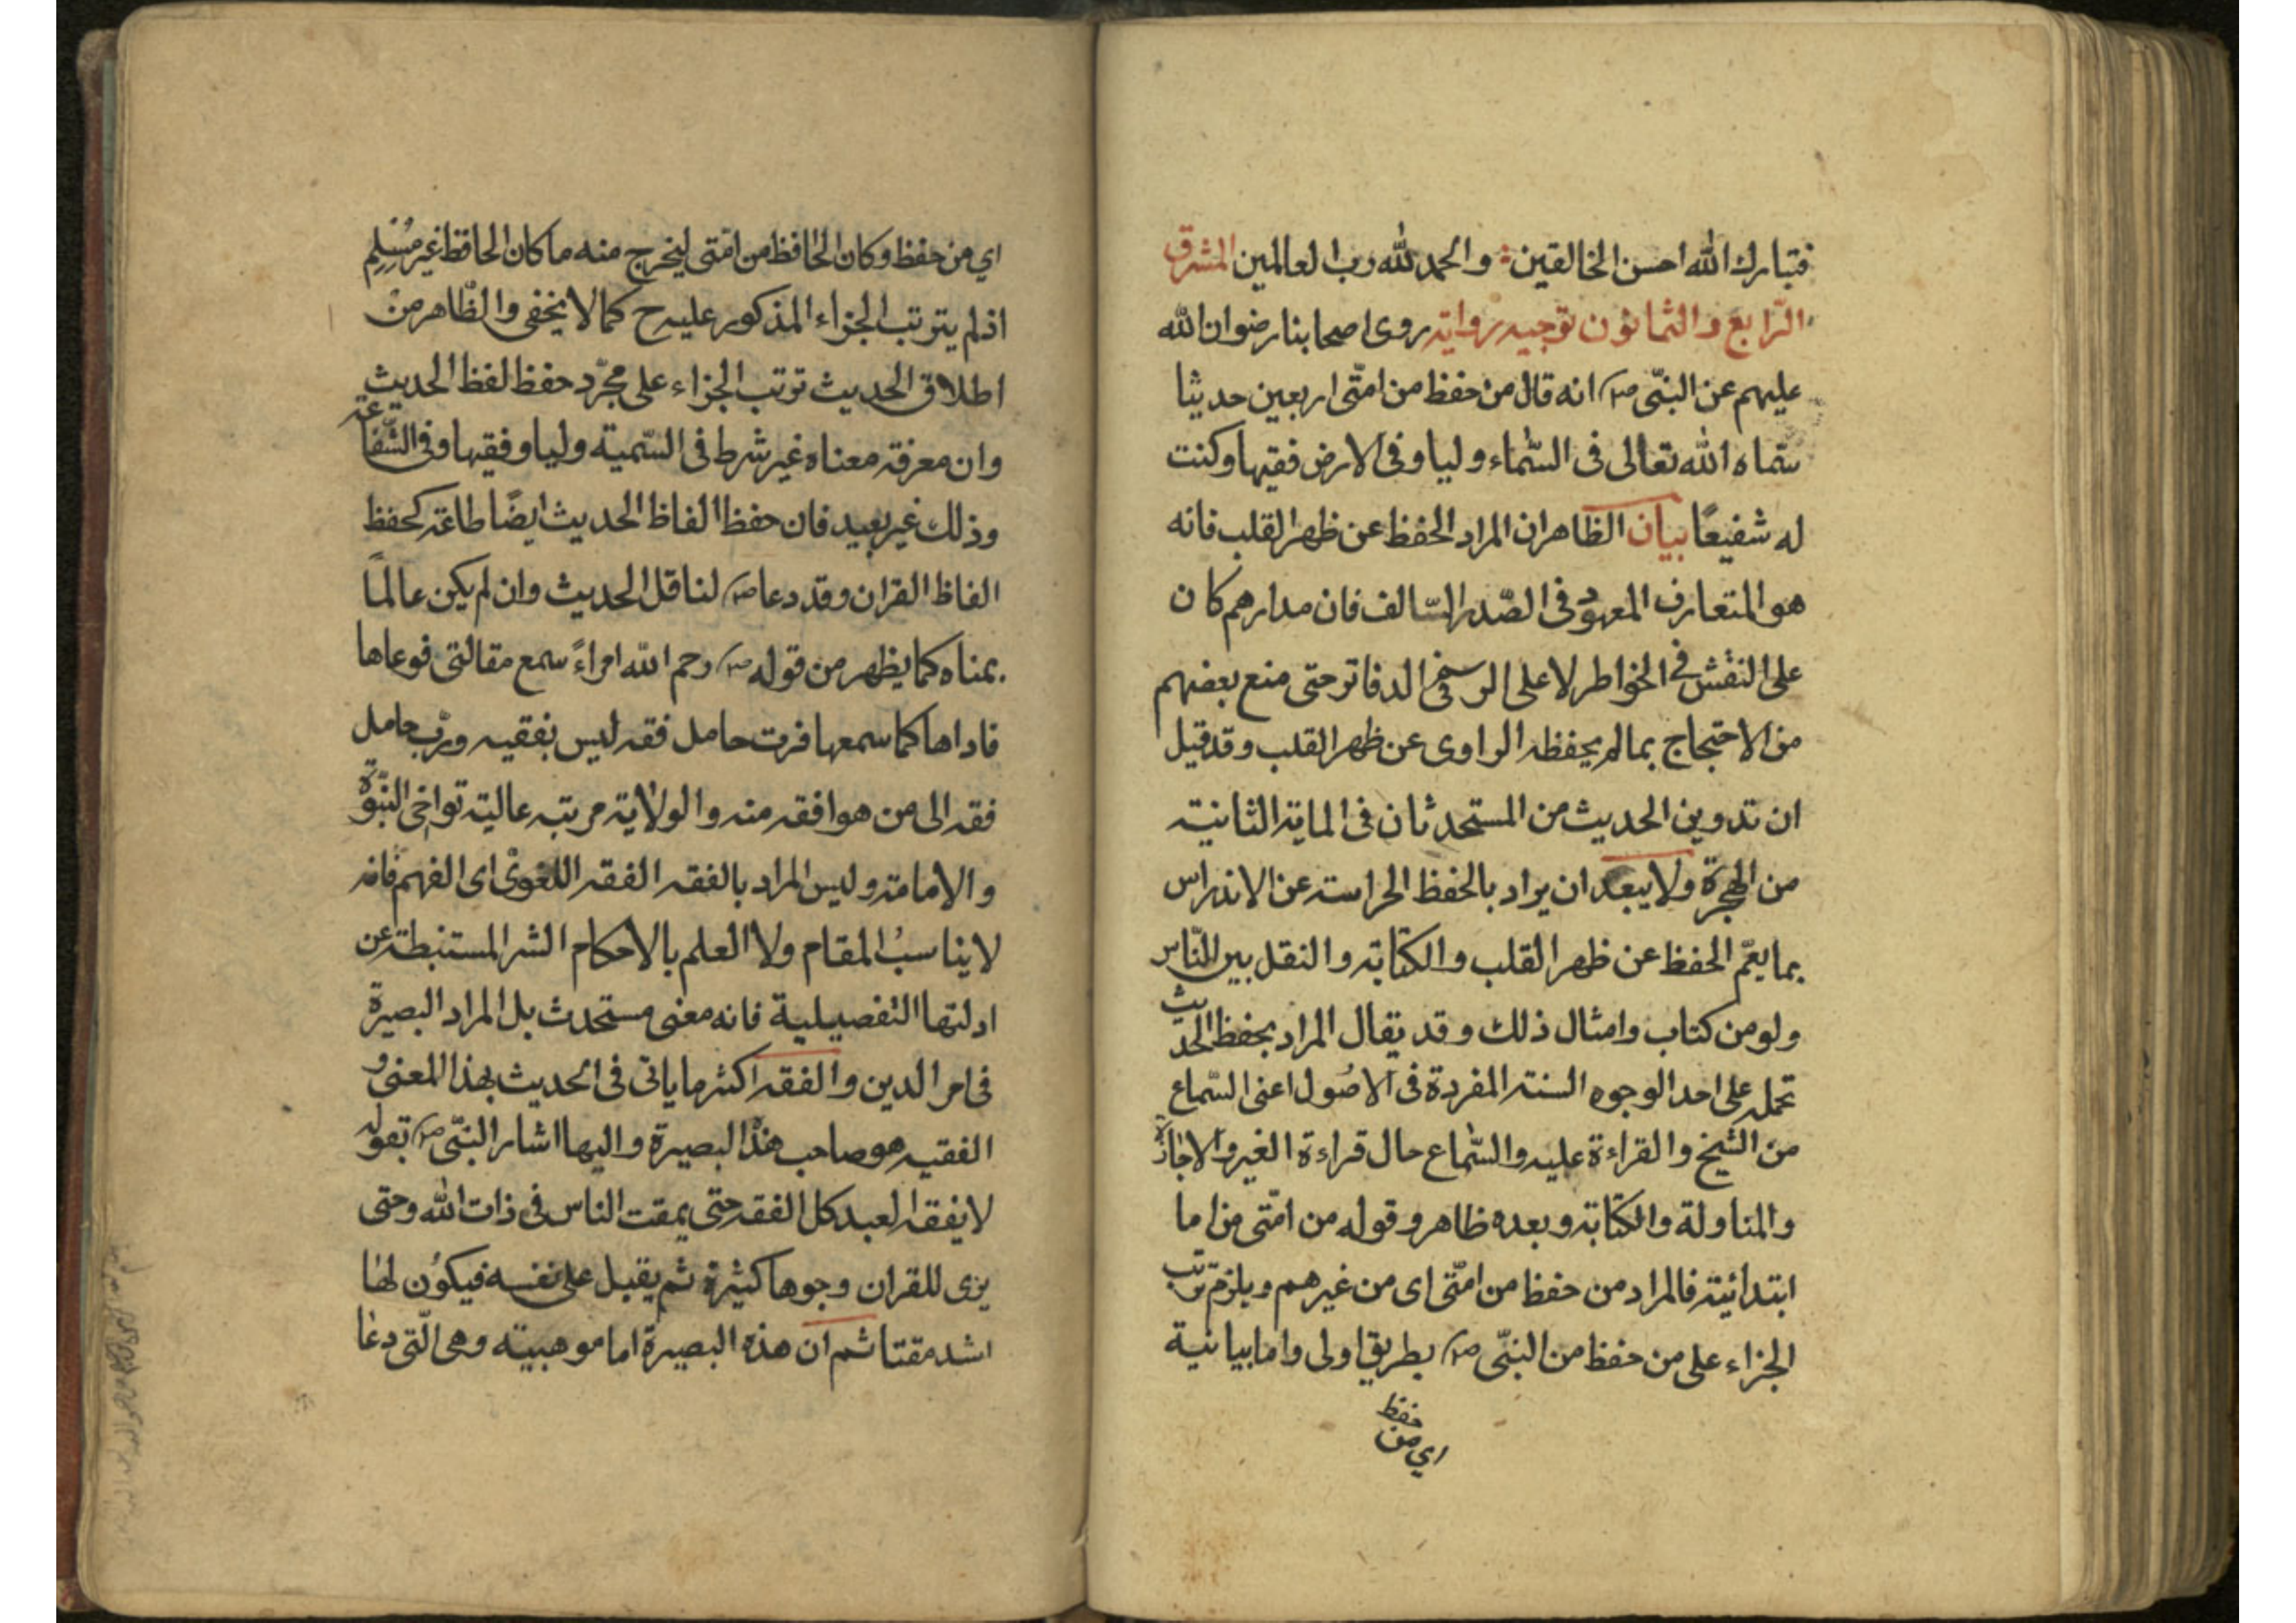 فتبارك الله احسن الخالقين والحمد لله رب العالمين المشرق
الرّابع والثمانون توجيه رواية روى اصحابنا رضوان الله
عليهم عن النبّى ص انه قال من حفظ من امّتى اربعين حديثا
سمّاه الله تعالى فى السّماء وليا وفى الارض فقيها وكنت
له شفيعًا بيان الظاهران المراد الحفظ عن ظهر القلب فانه
هو المتعارف المعهود فى الصّدر السّالف فان مدارهم كان
على النقش فى الخواطر لا على الرسم فى الدفاتر حتى منع بعضهم
من الاحتجاج بمالم يحفظه الراوى عن ظهر القلب وقد قيل
ان تدوين الحديث من المستحدثان فى الماية الثانية
من الهجرة ولا يبعد ان يراد بالحفظ الحراسة عن الاندراس
بما يعّم الحفظ عن ظهر القلب والكتابة والنقل بين النّاس
ولو من كتاب وامثال ذلك وقد يقال المراد بحفظ الحديث
تحمله على احد الوجوه الستة المفردة فى الاصُول اعنى السّماع
من الشيخ والقراءة عليه والسّماع حال قراءة الغير والاجازة
والمناولة والكتابة وبعده ظاهر وقوله من امّتى من اما
ابتدائية فالمراد من حفظ من امّتى اى من غيرهم ويلزم ترتب
الجزاء على من حفظ من النبّى ص بطريق اولى واما بيانية
اي من حفظ
اي من حفظ وكان الحافظ من امّتى ليخرج منه ماكان الحافظ غير مُسْلِمٍ
اذلم يترتب الجزاء المذكور عليه ح كما لا يخفى والظّاهر من
اطلاق الحديث ترتب الجزاء على مجرّد حفظ لفظ الحديث
وان معرفة معناه غير شرط فى السّمية وليا وفقيها وفى الشّفاعة
وذلك غير بعيد فان حفظ الفاظ الحديث ايضًا طاعة كحفظ
الفاظ القران وقد دعا ص لناقل الحديث وان لم يكن عالمًا
بمناه كما يظهر من قوله ص رحم الله امراءً سمع مقالتى فوعاها
فاداها كما سمعها فرب حامل فقه ليس بفقيه وربّ حامل
فقه الى من هو افقه منه والولاية مرتبه عالية تواخى النبّوة
والامامة وليس المراد بالفقه الفقه اللغوى اى الفهم فانه
لا يناسبُ المقام ولا العلم بالاحكام الشر المستنبطة عن
ادلتها التفصيلية فانه معنى مستحدث بل المراد البصيرة
فى امر الدين والفقه اكثر ما ياتى فى الحديث بهذا المعنى و
الفقيه هو صاحب هذه البصيرة واليها اشار النبّى ص بقوله
لا يفقه العبد كل الفقه حتى يمقت الناس فى ذات الله وحتى
يرى للقران وجوها كثيرة ثم يقبل على نفسه فيكوُن لها
اشد مقتا ثم ان هذه البصيرة اما موهبية وهى الّتى دعا